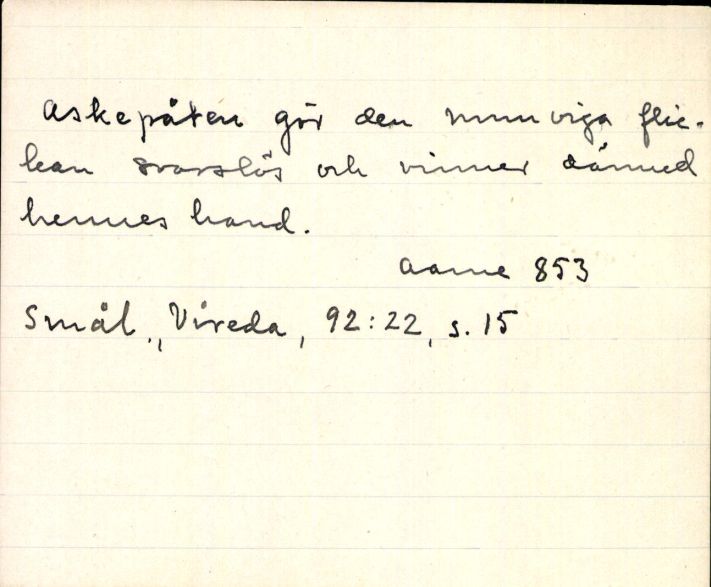 Askepåten gör den munviga flic-
kan svarslös och vinner därmed
hennes hand.
Aarne 853
Smål., Vireda, 92:22, s. 15